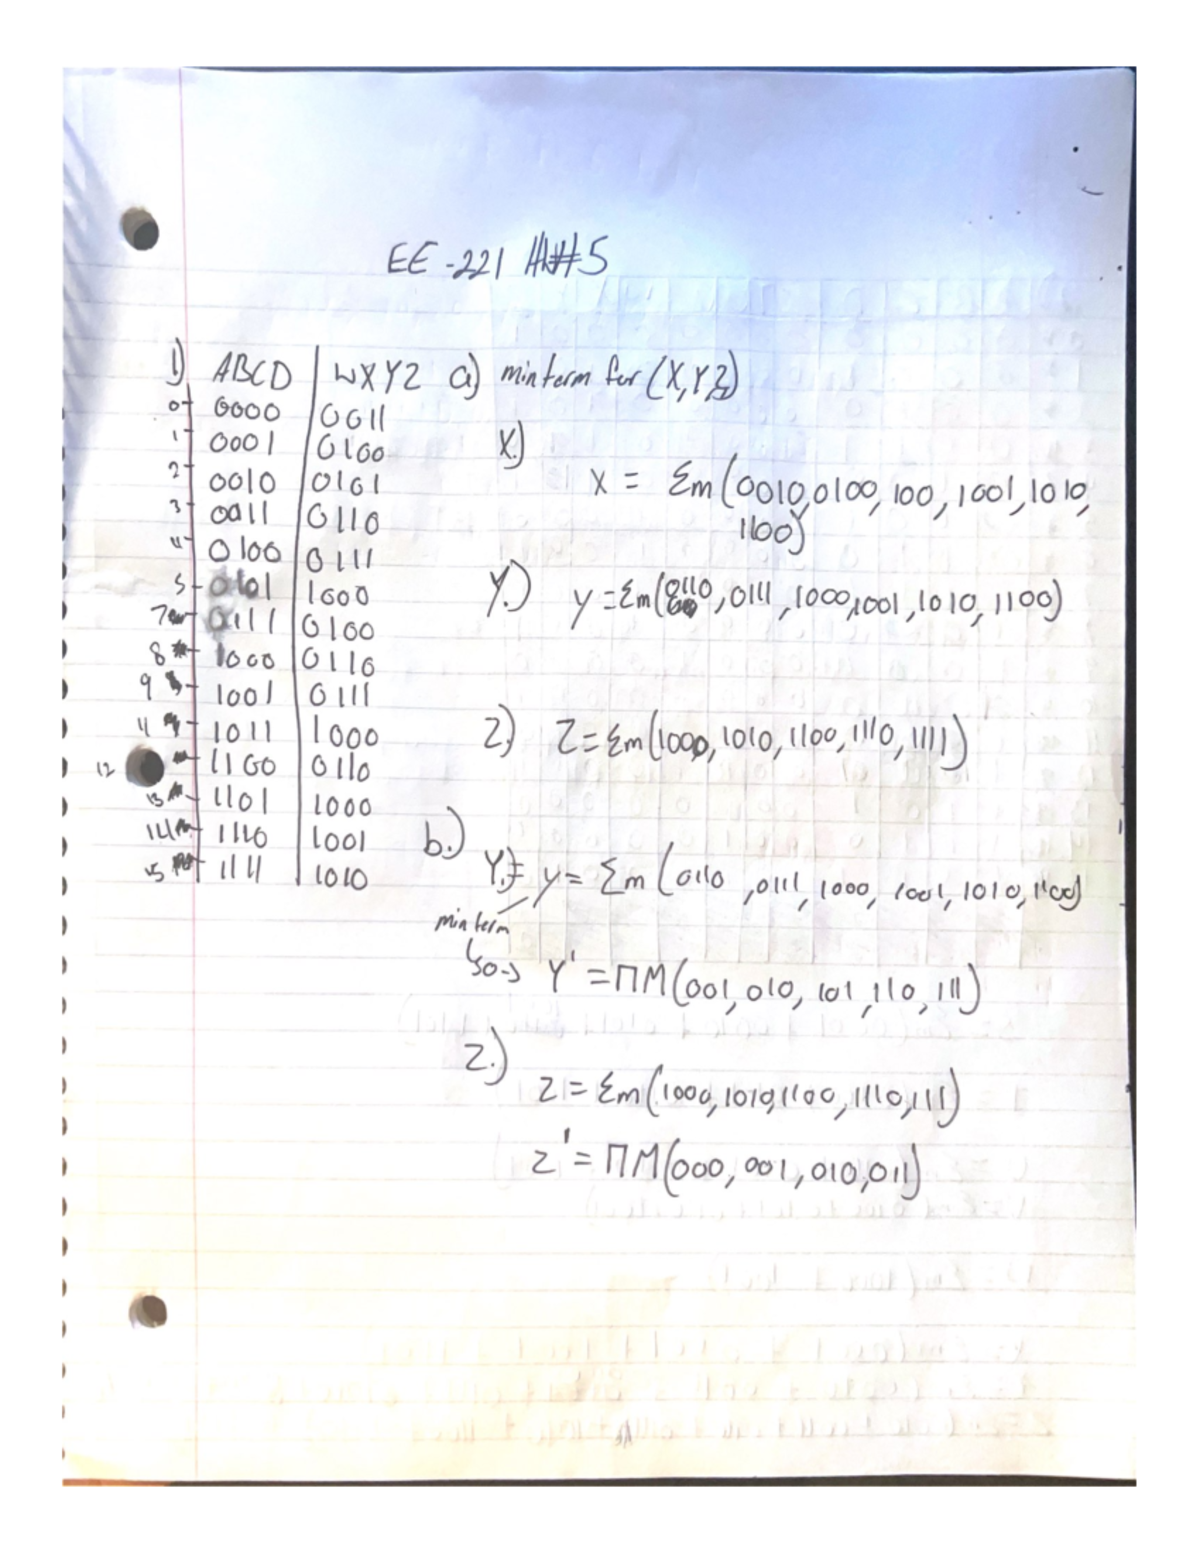 EE-221 HW#5
1) ABCD | WXYZ a) minterm for (X,Y,Z)
0 0000 0011
1 0001 0100 X.)
2 0010 0101 X = Σm(0010,0100, 100, 1001, 1010,
3 0011 0110 1100)
4 0100 0111
5 0101 1000 Y.) y = Σm(0110, 0111, 1000, 1001, 1010, 1100)
7 0111 0100
8 1000 0110
9 1001 0111
11 1011 1000 Z) Z = Σm(1000, 1010, 1100, 1110, 1111)
12 1100 0110
13 1101 1000
14 1110 1001 b.)
15 1111 1010 Y.) y = Σm(0110, 0111, 1000, 1001, 1010, 1100)
minterm
so → Y' = ΠM(001, 010, 101, 110, 111)
Z.)
Z = Σm(1000, 1010, 1100, 1110, 111)
Z' = ΠM(000, 001, 010, 011)